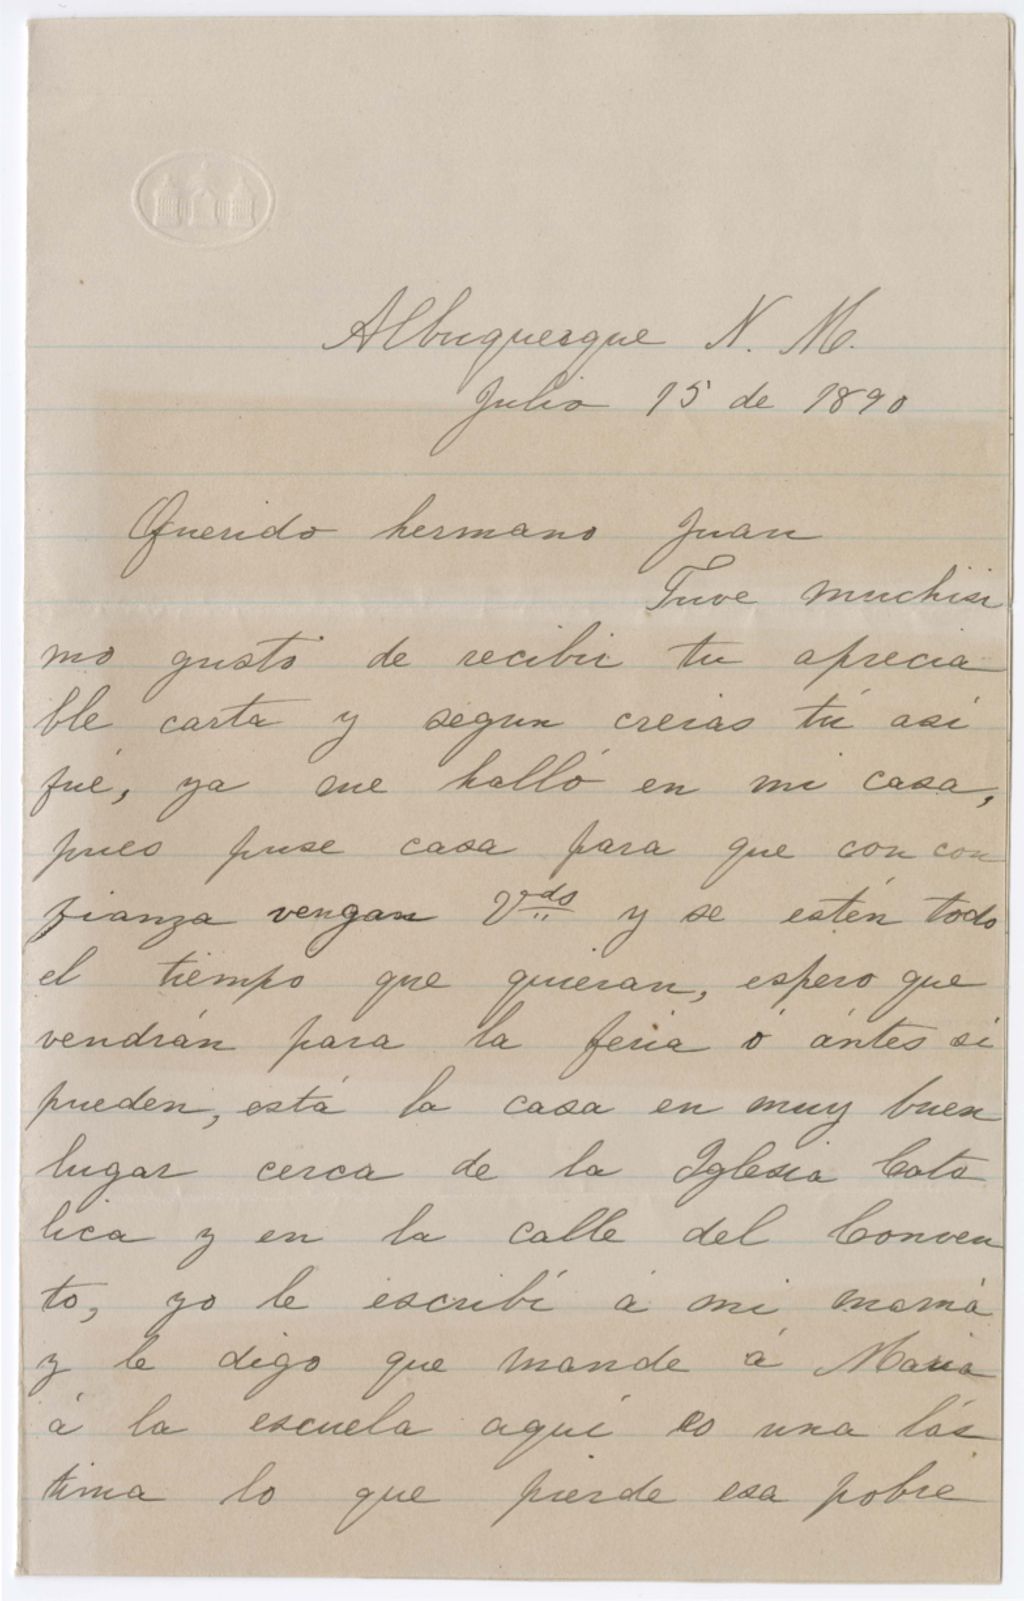 Albuquerque N. M.
Julio 15 de 1890
Querido hermano Juan
Tuve muchisi
mo gusto de recibir tu aprecia
ble carta y segun creias tú asi
fué, ya me halló en mi casa,
pues puse casa para que con con
fianza vengan Vds y se estén todo
el tiempo que quieran, espero que
vendrán para la feria ó ántes si
pueden, está la casa en muy buen
lugar cerca de la Iglesia Cato
lica y en la calle del Conven
to, yo le escribí á mi mamá
y le digo que mande á Maria
á la escuela aquí es una lás
tima lo que pierde esa pobre